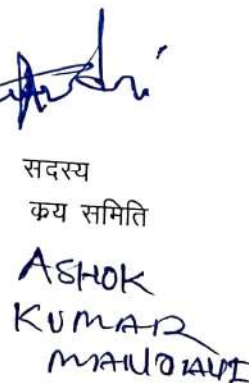 सदस्य
क्रय समिति
ASHOK
KUMAR